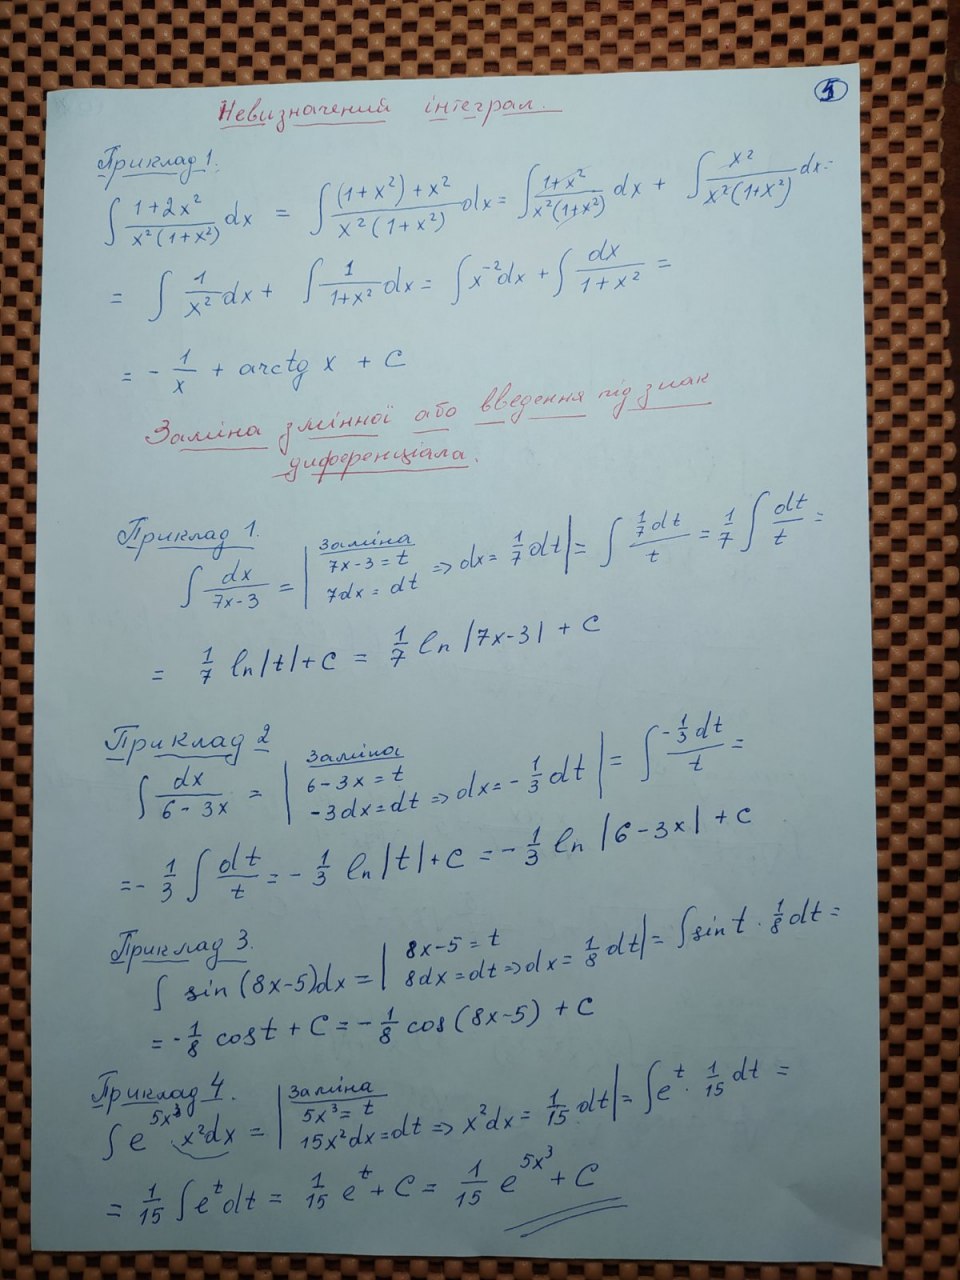 5
Невизначений інтеграл.
Приклад 1.
∫ (1+2x²)/(x²(1+x²)) dx = ∫ ((1+x²)+x²)/(x²(1+x²)) dx = ∫ (1+x²)/(x²(1+x²)) dx + ∫ x²/(x²(1+x²)) dx =
= ∫ 1/x² dx + ∫ 1/(1+x²) dx = ∫ x⁻² dx + ∫ dx/(1+x²) =
= - 1/x + arctg x + C
Заміна змінної або введення під знак
диференціала.
Приклад 1.
∫ dx/(7x-3) = | Заміна 7x-3 = t 7dx = dt => dx = 1/7 dt | = ∫ (1/7 dt)/t = 1/7 ∫ dt/t =
= 1/7 ln|t| + C = 1/7 ln |7x-3| + C
Приклад 2
∫ dx/(6-3x) = | Заміна 6-3x = t -3dx = dt => dx = - 1/3 dt | = ∫ (-1/3 dt)/t =
= - 1/3 ∫ dt/t = - 1/3 ln|t| + C = - 1/3 ln |6-3x| + C
Приклад 3.
∫ sin (8x-5)dx = | 8x-5 = t 8dx = dt => dx = 1/8 dt | = ∫ sin t · 1/8 dt =
= - 1/8 cos t + C = - 1/8 cos (8x-5) + C
Приклад 4.
∫ e^(5x³) · x²dx = | Заміна 5x³ = t 15x²dx = dt => x²dx = 1/15 dt | = ∫ e^t · 1/15 dt =
= 1/15 ∫ e^t dt = 1/15 e^t + C = 1/15 e^(5x³) + C